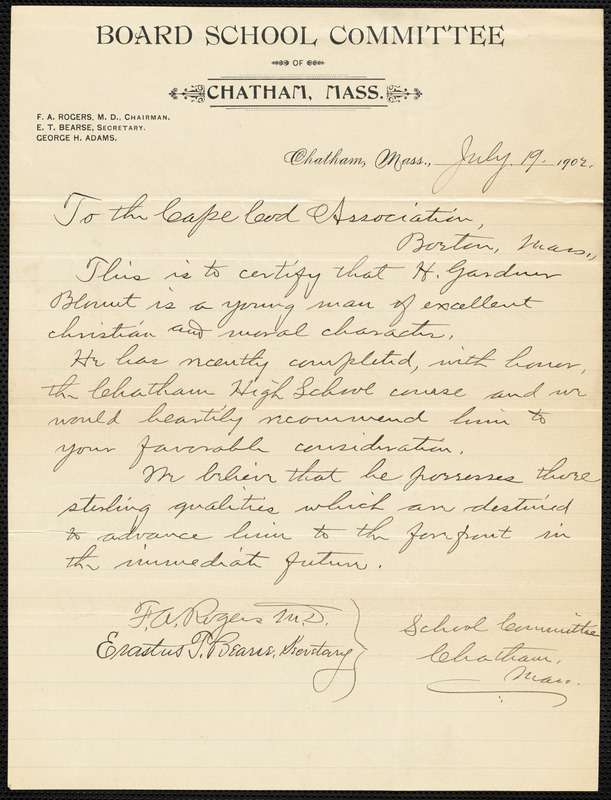 BOARD SCHOOL COMMITTEE
OF
CHATHAM, MASS.
F. A. ROGERS, M. D., CHAIRMAN.
E. T. BEARSE, SECRETARY.
GEORGE H. ADAMS.
Chatham, Mass., July 19. 1902.
To the Cape Cod Association,
Boston, Mass.,
This is to certify that H. Gardner
Blount is a young man of excellent
christian and moral character.
He has recently completed, with honor,
the Chatham High School course and we
would heartily recommend him to
your favorable consideration.
We believe that he possesses those
sterling qualities which are destined
to advance him to the forefront in
the immediate future.
F. A. Rogers M.D.
Erastus T. Bearse, Secretary
School Committee
Chatham,
Mass.